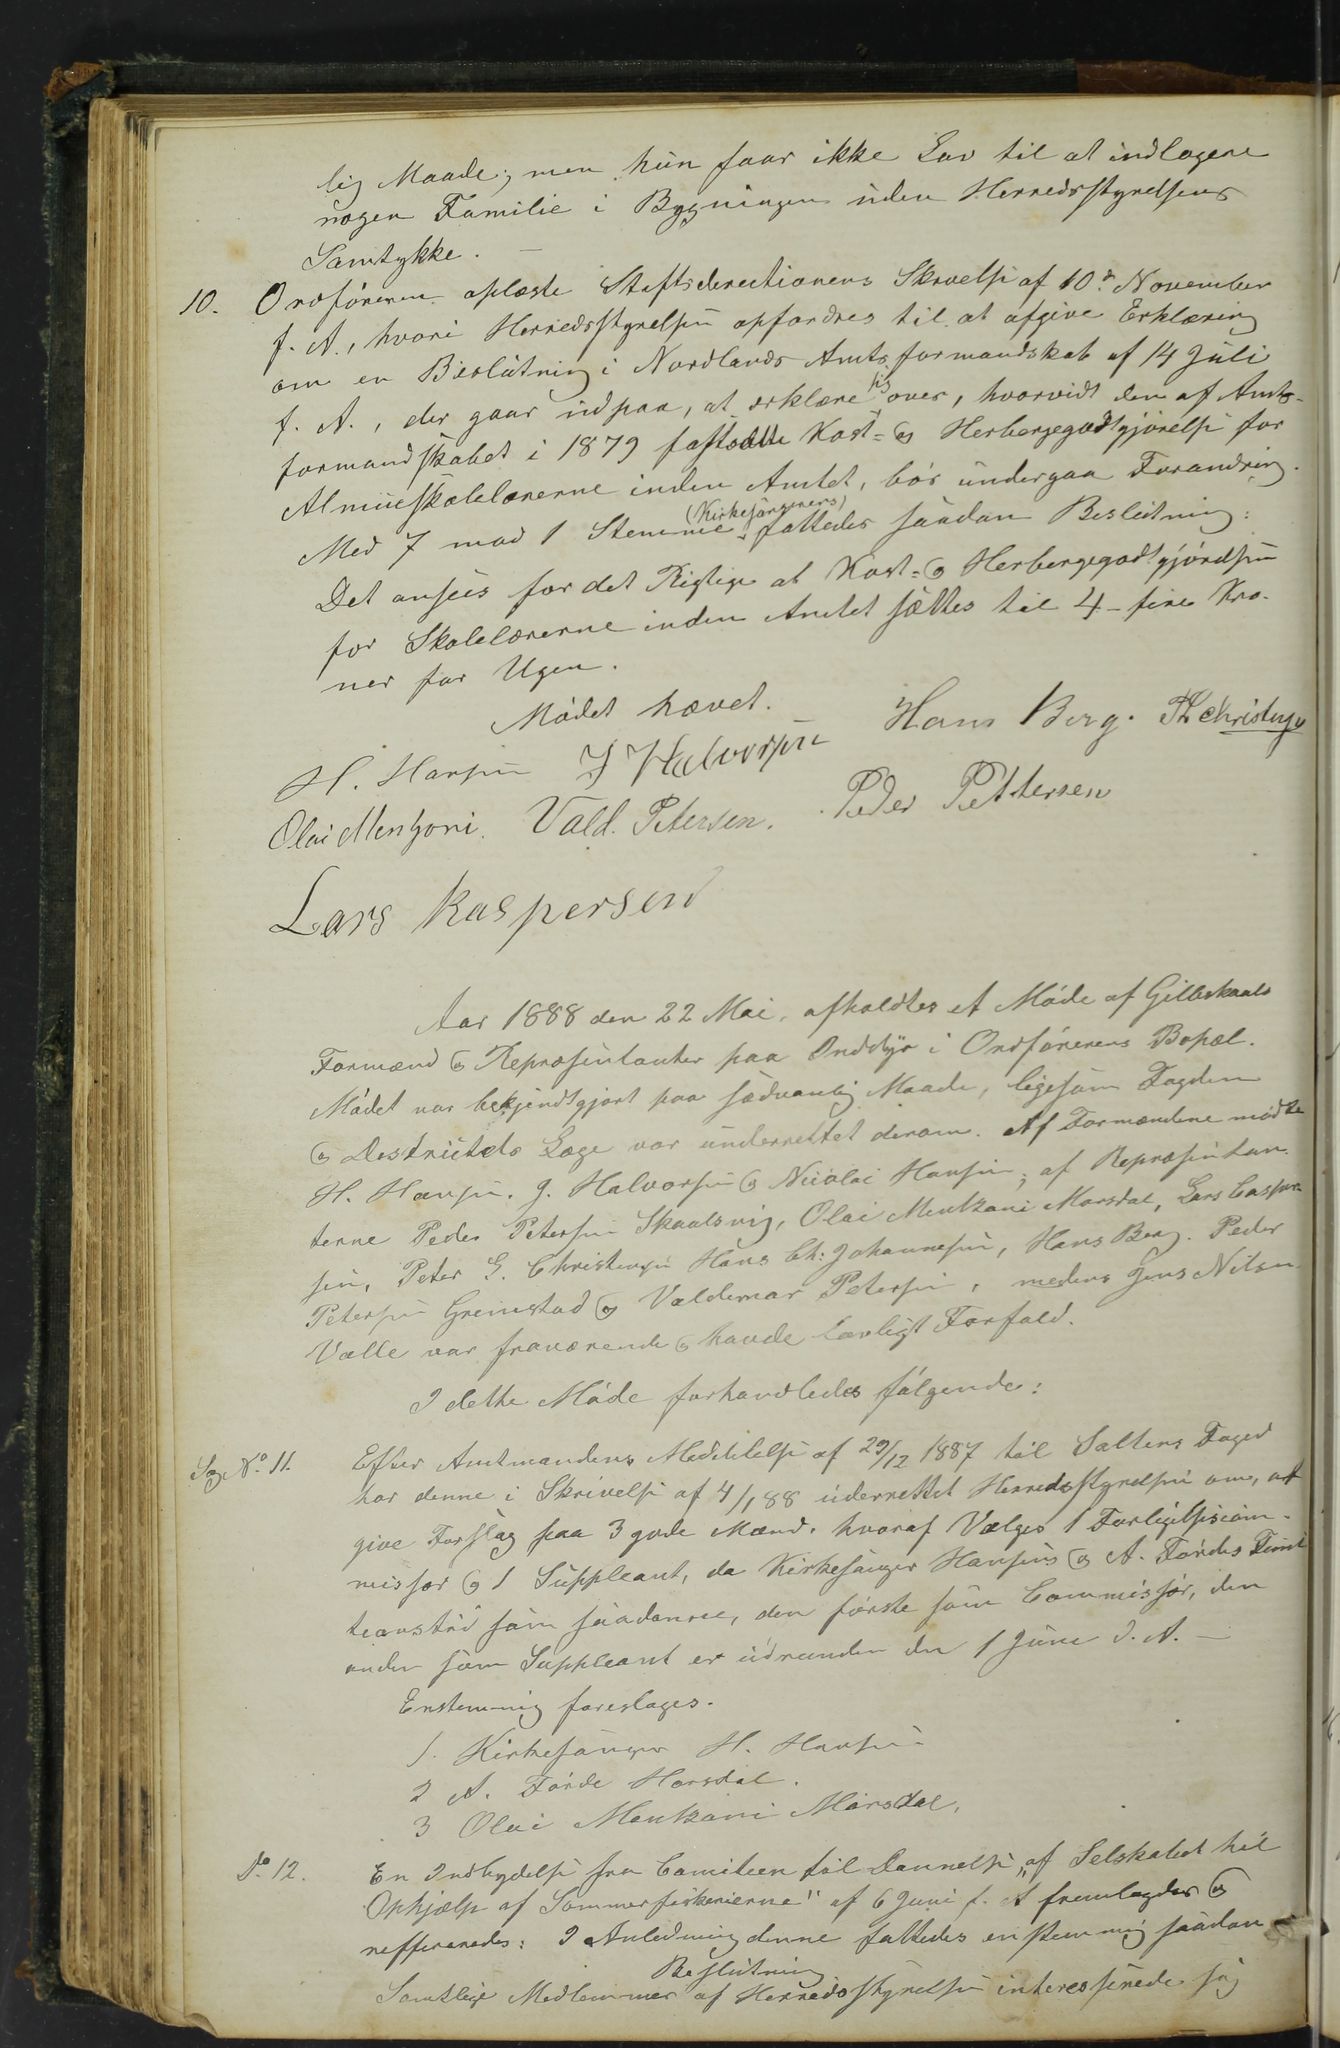 lig Maade; men hun faar ikke Lov til at indlogere
nogen Familie i Bygningen uden Herredsstyrelsens
Samtykke. —
10. Ordføreren oplæste Stiftsdirectionens Skrivelse af 10de November
f. A., hvori Herredsstyrelsen opfordres til at afgive Erklæring
om en Beslutning i Nordlands Amtsformandskab af 14 Juli
f. A., der gaar ud paa, at erklære sig over, hvorvidt den af Amts-
formandskabet i 1879 fastsatte Kost- og Herbergegodtgjørelse for
Almueskolelærerne inden Amtet, bør undergaa Forandring.
Med 7 mod 1 Stemme (Kirkesangerens) fattedes saadan Beslutning:
Det ansees for det Rigtige at Kost- og Herbergegodtgjørelsen
for Skolelærerne inden Amtet sættes til 4 - fire Kro-
ner for Ugen.
Mødet hævet.
H. Hansen J Halvorsen Hans Berg. P L Christensen
Olai Mentzoni. Vald. Petersen. Peder Pettersen
Lars Kaspersen
Aar 1888 den 22 Mai, afholdtes et Møde af Gilleskaals
Formænd og Repræsentanter paa Inddyr i Ordførerens Bopæl.
Mødet var bekjendtgjort paa sædvanlig Maade, ligesom Fogden
og Destrictets Læge var underrettet derom. Af Formændene mødte
H. Hansen, J. Halvorsen og Nicolai Hansen; af Repræsentan
terne Peder Petersen Skaalsvig, Olai Mentzoni Marsdal, Lars Casper
sen, Peter L. Christensen Hans Ch: Johannesen, Hans Berg. Peder
Petersen Greinstad og Valdemar Petersen, medens Jens Nilsen
Valle var fraværende og havde lovligt Forfald.
I dette Møde forhandledes følgende:
Sag No. 11. Efter Amtmandens Meddelelse af 29/12 1887 til Saltens Foged
har denne i Skrivelse af 4/1 88 underrettet Herredsstyrelsen om, at
give Forslag paa 3 gode Mænd, hvoraf Vælges 1 Forligelsescom-
missær og 1 Suppleant, da Kirkesanger Hansens og A. Førdes
som saadanne, den første som Commissær, den
anden som Suppleant er udrunden den 1 Juni d. A. —
Enstemmig foreslages.
1. Kirkesanger H. Hansen
2 A. Førde Horsdal.
3 Olai Mentzoni Marsdal,
Do 12. En Indbydelse fra Comiteen til Dannelse "af Selskabet til
Ophjælp af Sommerfiskerierne" af 6 Juni f. A fremlagdes og
reffereredes: I Anledning denne fattedes enstemmig saadan
Beslutning
Samtlige Medlemmer af Herredsstyrelsen interesserede sig